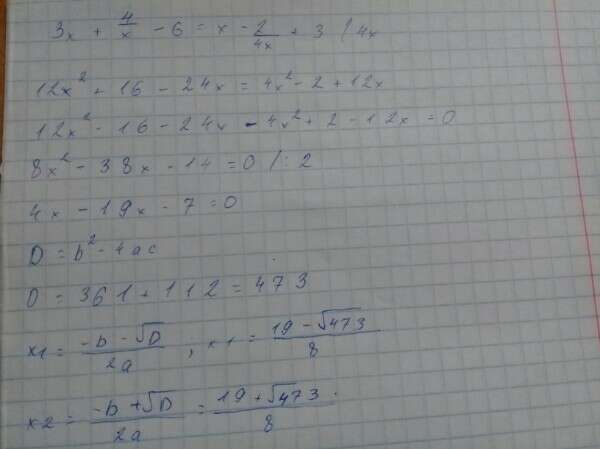 3x + 4/x - 6 = x - 2/4x + 3 / 4x
12x² + 16 - 24x = 4x² - 2 + 12x
12x² - 16 - 24x - 4x² + 2 - 12x = 0
8x² - 38x - 14 = 0 /: 2
4x - 19x - 7 = 0
D = b² - 4ac
D = 361 + 112 = 473
x1 = -b - √D / 2a ; x1 = 19 - √473 / 8
x2 = -b + √D / 2a = 19 + √473 / 8